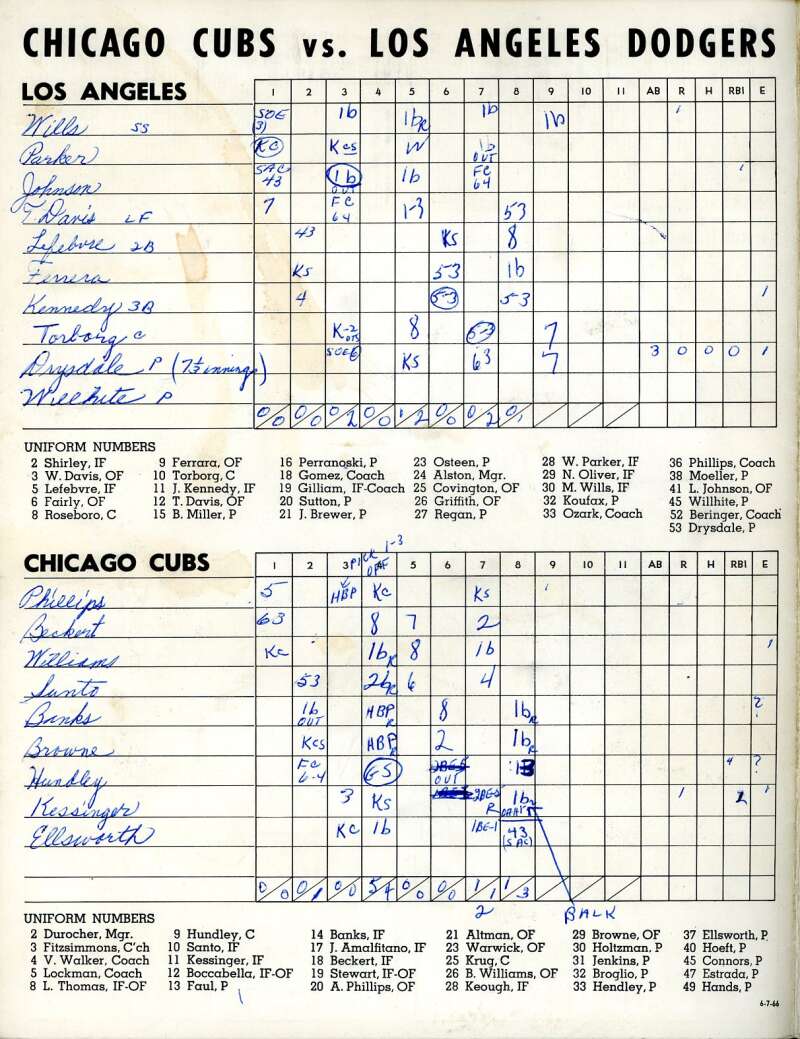 CHICAGO CUBS vs. LOS ANGELES DODGERS
LOS ANGELES 1 2 3 4 5 6 7 8 9 10 11 AB R H RBI E
Wills SS SOE (3) 1b 1bR 1b 1b 1
Parker Kc Kcs W 1b OUT
Johnson SAC 43 1b OUT 1b FC 64 1
T. Davis LF 7 FC 64 1-3 53
Lefebvre 2B 43 Ks 8
Ferrera Ks 53 1b
Kennedy 3B 4 5-3 53 1
Torborg C K-2 8 6-3 7
Drysdale P (7⅓ innings) SOE6 Ks 63 7 3 0 0 0 1
Willhite P
0/0 0/0 0/2 0/0 1/2 0/0 0/2 0/1
UNIFORM NUMBERS
2 Shirley, IF 9 Ferrara, OF 16 Perranoski, P 23 Osteen, P 28 W. Parker, IF 36 Phillips, Coach
3 W. Davis, OF 10 Torborg, C 18 Gomez, Coach 24 Alston, Mgr. 29 N. Oliver, IF 38 Moeller, P
5 Lefebvre, IF 11 J. Kennedy, IF 19 Gilliam, IF-Coach 25 Covington, OF 30 M. Wills, IF 41 L. Johnson, OF
6 Fairly, OF 12 T. Davis, OF 20 Sutton, P 26 Griffith, OF 32 Koufax, P 45 Willhite, P
8 Roseboro, C 15 B. Miller, P 21 J. Brewer, P 27 Regan, P 33 Ozark, Coach 52 Beringer, Coach
53 Drysdale, P
PICK OFF 1-3
CHICAGO CUBS 1 2 3 4 5 6 7 8 9 10 11 AB R H RBI E
Phillips 5 HBP Kc Ks
Beckert 63 8 7 2
Williams Kc 1bR 8 1b 1
Santo 53 2bR 6 4
Banks 1b OUT HBPR 8 1bR 2
Browne Kcs HBPR 2 1bR
Hundley FC 6-4 GS OUT 13 4 ?
Kessinger 3 Ks 2BE-5 R 1b 1 2 1
Ellsworth Kc 1b 1BE-1 43 (SAC)
0/0 0/1 0/0 5/4 0/0 0/0 1/1 1/3
2 BALK
UNIFORM NUMBERS
2 Durocher, Mgr. 9 Hundley, C 14 Banks, IF 21 Altman, OF 29 Browne, OF 37 Ellsworth, P
3 Fitzsimmons, C'ch 10 Santo, IF 17 J. Amalfitano, IF 23 Warwick, OF 30 Holtzman, P 40 Hoeft, P
4 V. Walker, Coach 11 Kessinger, IF 18 Beckert, IF 25 Krug, C 31 Jenkins, P 45 Connors, P
5 Lockman, Coach 12 Boccabella, IF-OF 19 Stewart, IF-OF 26 B. Williams, OF 32 Broglio, P 47 Estrada, P
8 L. Thomas, IF-OF 13 Faul, P 20 A. Phillips, OF 28 Keough, IF 33 Hendley, P 49 Hands, P
6-7-66